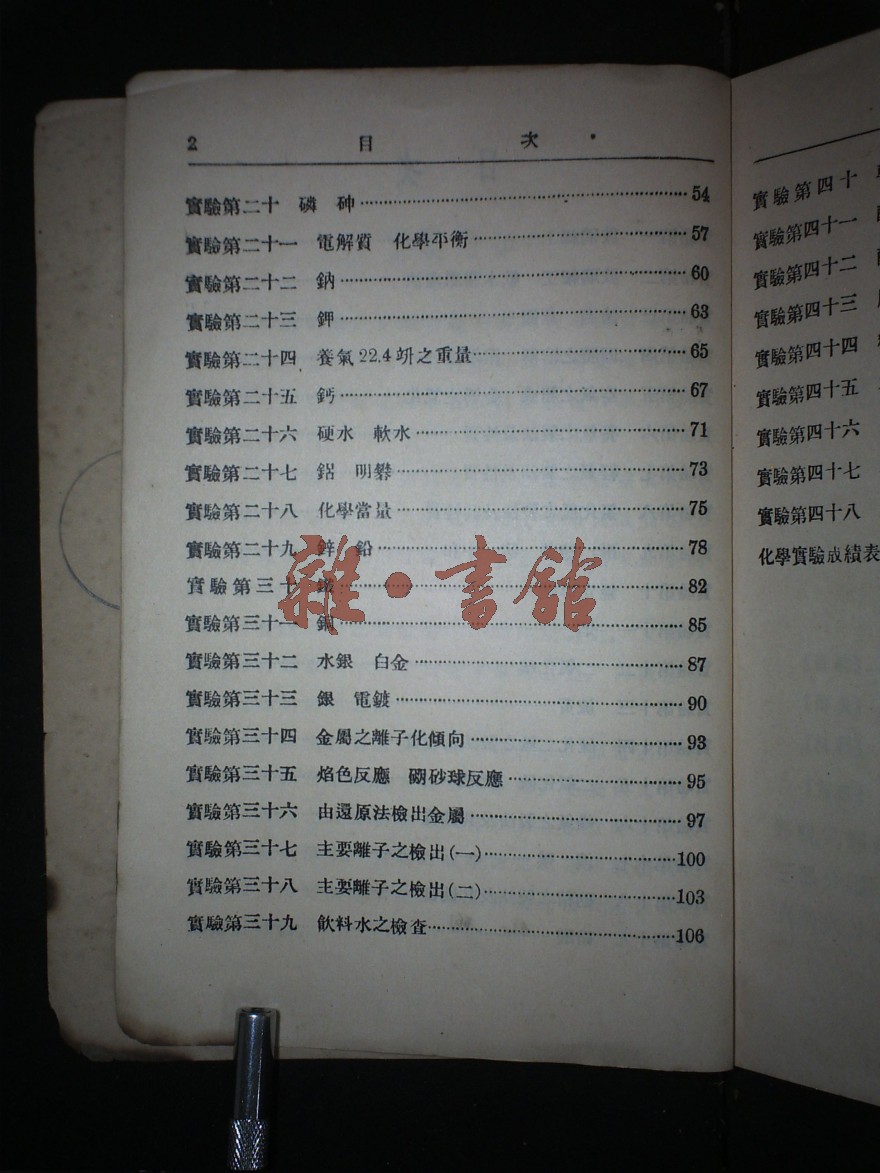 2 目 次
實驗第二十 磷 砷 54
實驗第二十一 電解質 化學平衡 57
實驗第二十二 鈉 60
實驗第二十三 鉀 63
實驗第二十四 養氣22.4竔之重量 65
實驗第二十五 鈣 67
實驗第二十六 硬水 軟水 71
實驗第二十七 鋁 明礬 73
實驗第二十八 化學當量 75
實驗第二十九 鋅 鉛 78
實驗第三十 鐵 82
實驗第三十一 銅 85
實驗第三十二 水銀 白金 87
實驗第三十三 銀 電鍍 90
實驗第三十四 金屬之離子化傾向 93
實驗第三十五 焰色反應 硼砂球反應 95
實驗第三十六 由還原法檢出金屬 97
實驗第三十七 主要離子之檢出(一) 100
實驗第三十八 主要離子之檢出(二) 103
實驗第三十九 飲料水之檢查 106
雜·書館
實驗第四十
實驗第四十一
實驗第四十二
實驗第四十三
實驗第四十四
實驗第四十五
實驗第四十六
實驗第四十七
實驗第四十八
化學實驗成績表